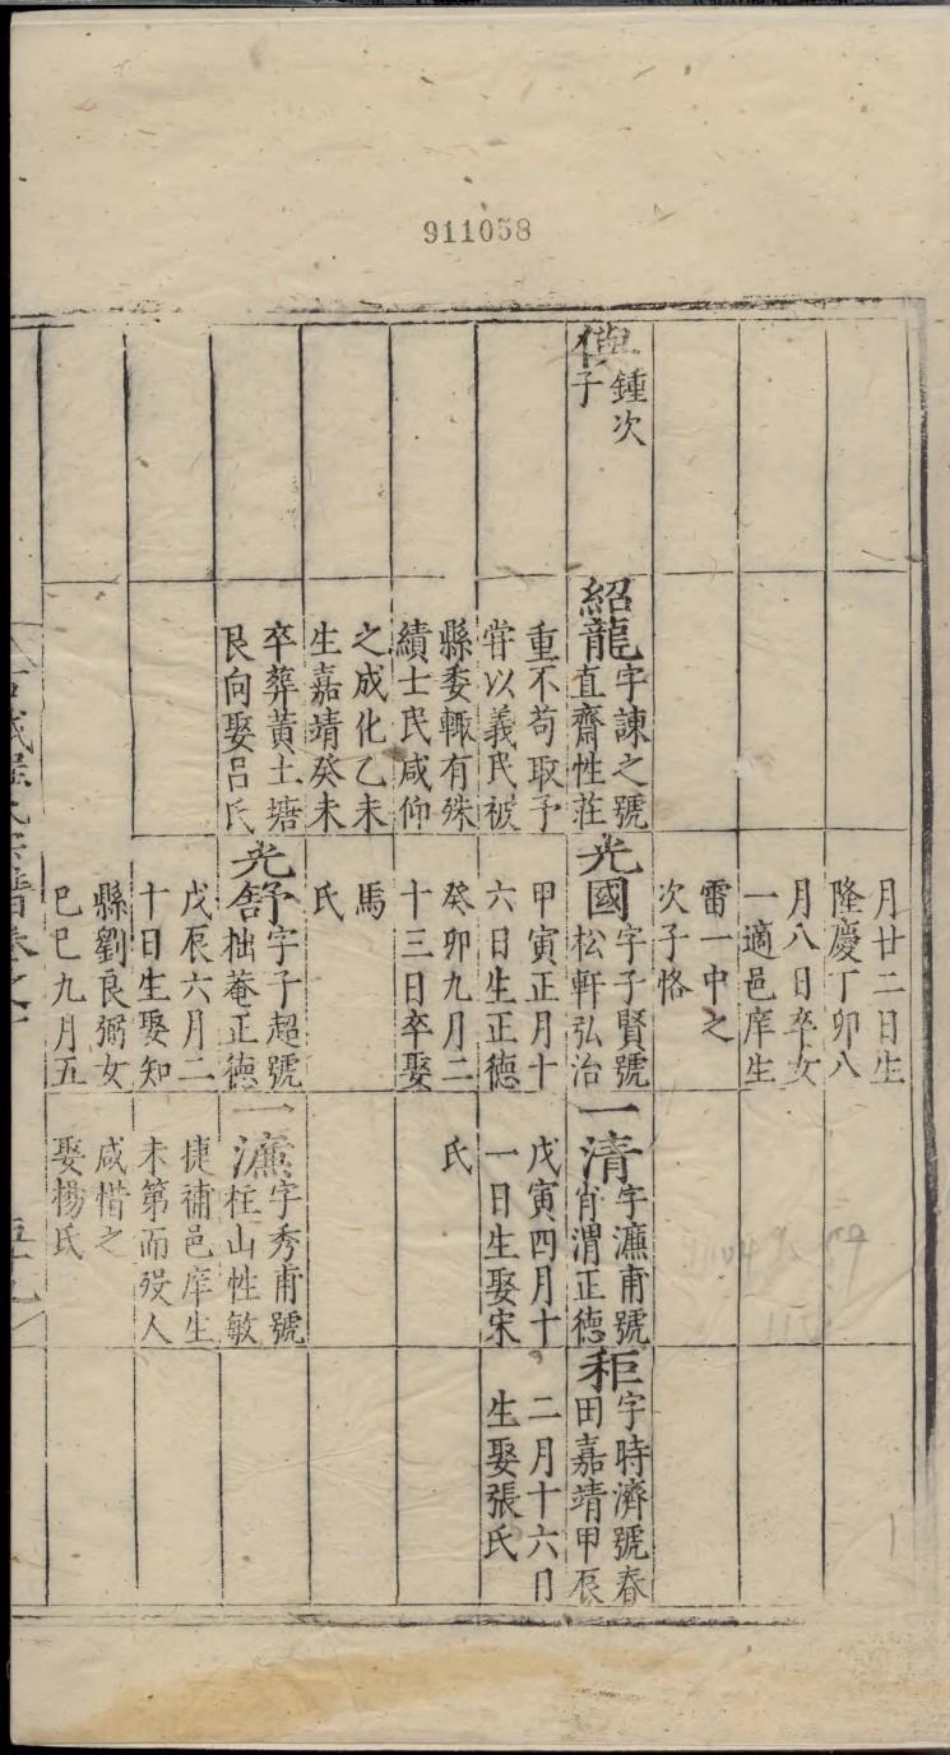 911058
鍾次
子
紹龍
字諫之號
直齋性莊
重不苟取予
甞以義民被
縣委輙有殊
績士民咸仰
之成化乙未
生嘉靖癸未
卒葬黃土塘
艮向娶呂氏
月廿二日生
隆慶丁卯八
月八日卒女
一適邑庠生
雷一中之
次子恪
光國
字子賢號
松軒弘治
甲寅正月十
六日生正德
癸卯九月二
十三日卒娶
馬
氏
光舒
字子超號
拙菴正德
戊辰六月二
十日生娶知
縣劉良弼女
巳巳九月五
一清
字濂甫號
肖渭正德
戊寅四月十
一日生娶宋
氏
一濂
字秀甫號
柱山性敏
捷補邑庠生
未第而歿人
咸惜之
娶楊氏
秬
字時濟號春
田嘉靖甲辰
二月十六日
生娶張氏